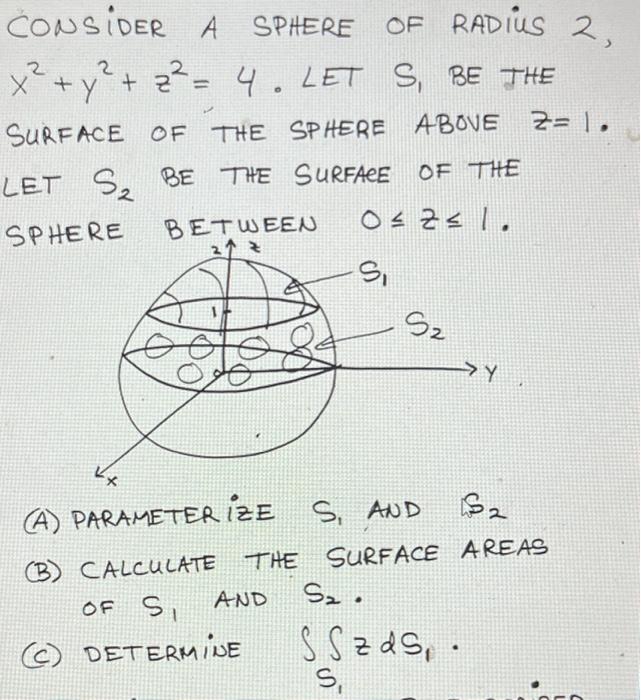 CONSIDER A SPHERE OF RADIUS 2,
x² + y² + z² = 4. LET S₁ BE THE
SURFACE OF THE SPHERE ABOVE Z=1.
LET S₂ BE THE SURFACE OF THE
SPHERE BETWEEN 0 ≤ Z ≤ 1.
2 z
S₁
1
S₂
0
Y
x
(A) PARAMETERIZE S₁ AND S₂
(B) CALCULATE THE SURFACE AREAS
OF S₁ AND S₂.
(C) DETERMINE ∫∫ z dS₁.
S₁